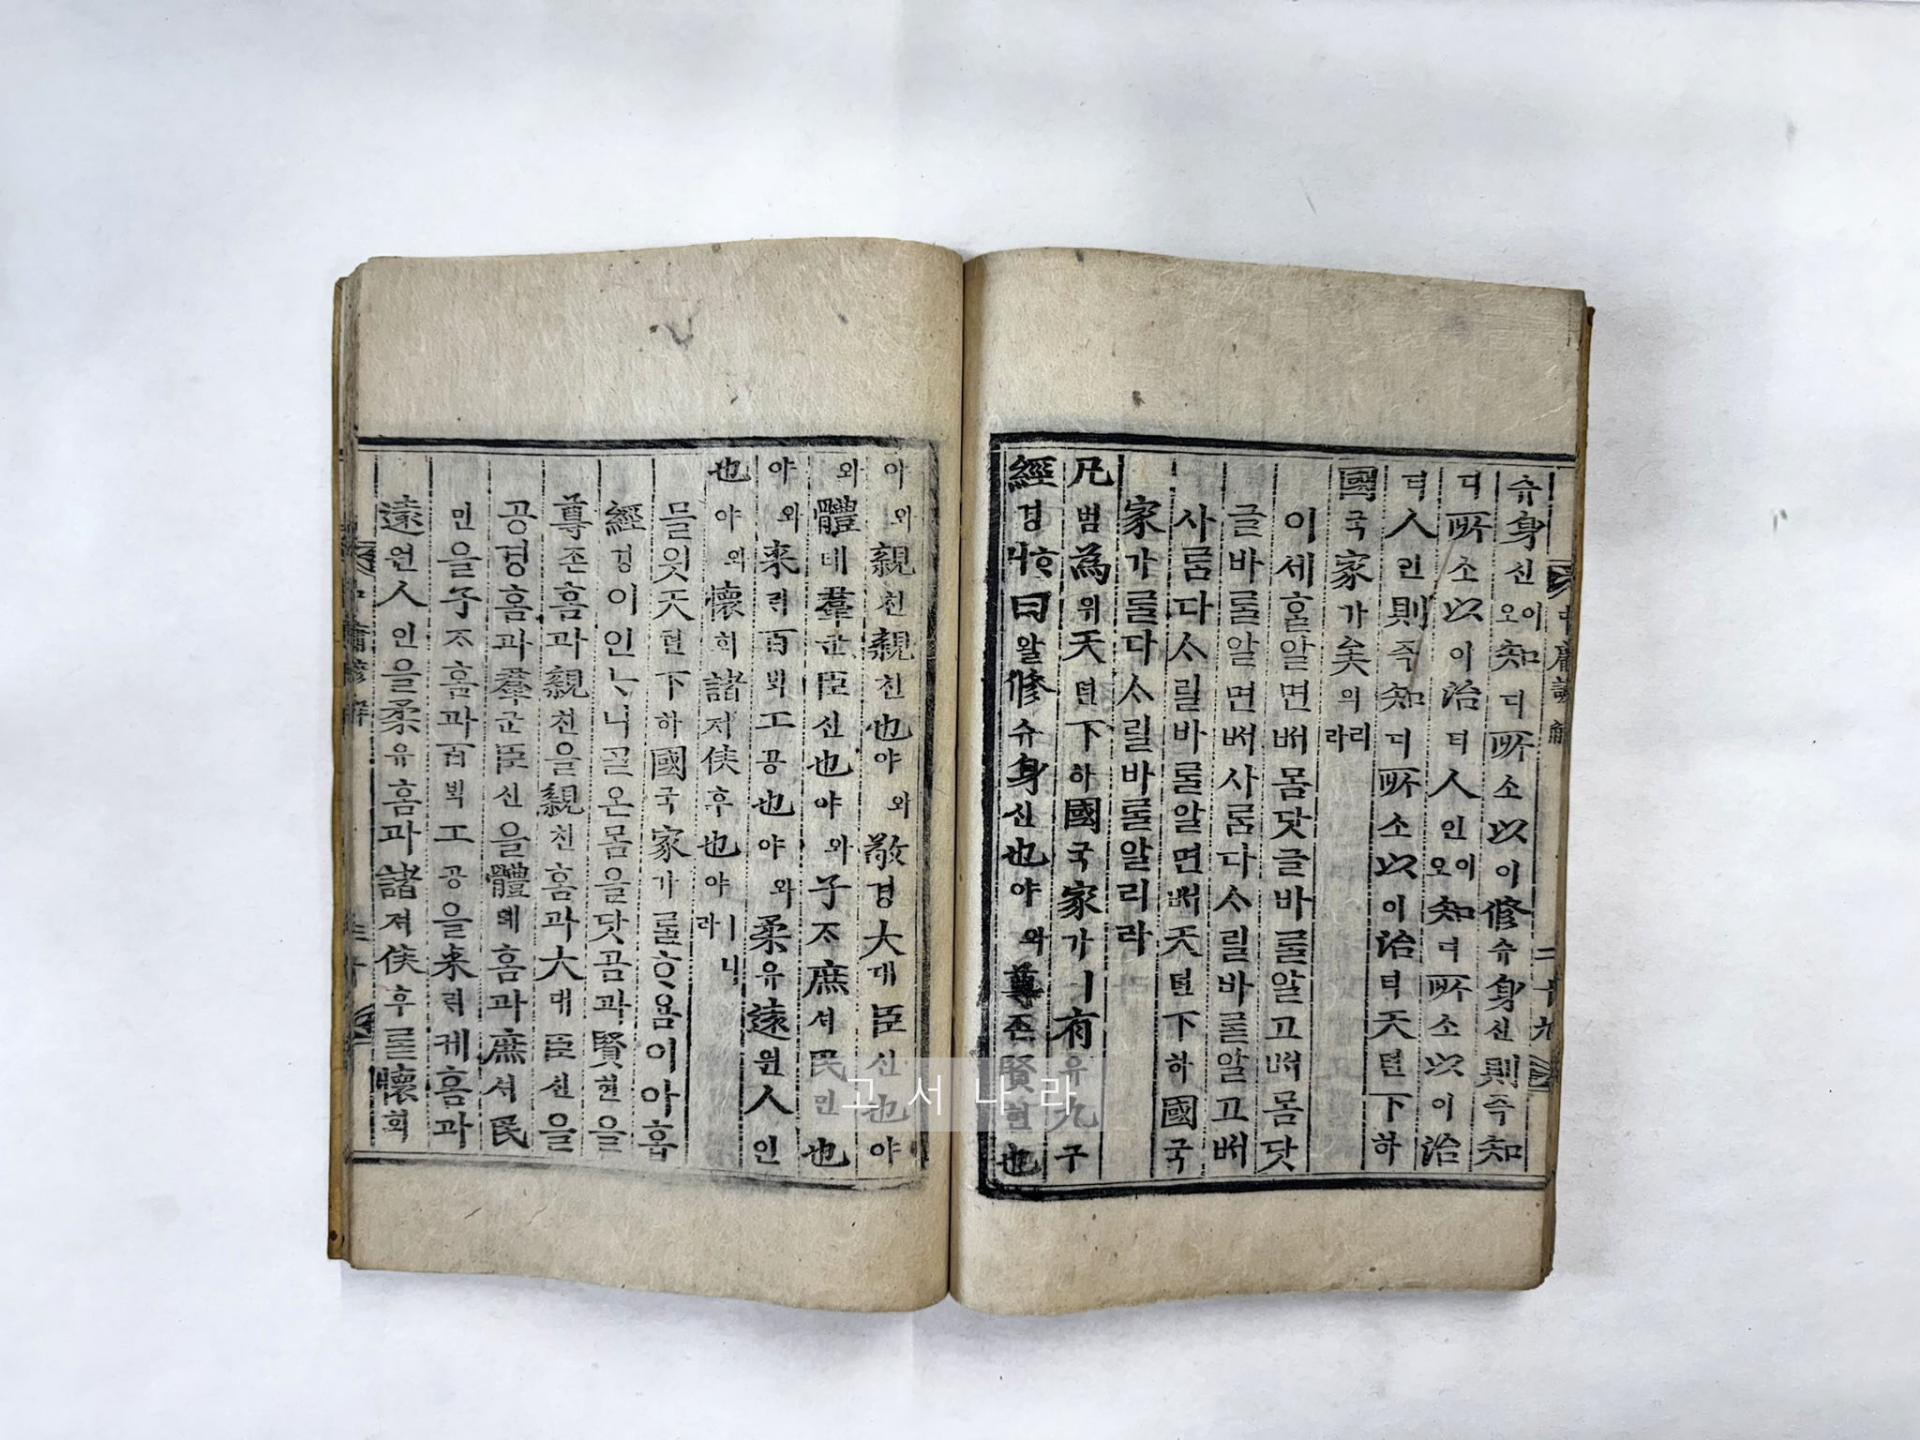 슈身신이오知디所소以이修슈身신則즉知
디所소以이治티人인이오知디所소以이治
티人인則즉知디所소以이治티天텬下하
國국家가矣의리라
이세흘알면뻐몸닷글바ᄅᆞᆯ알고뻐몸닷
글바ᄅᆞᆯ알면뻐사ᄅᆞᆷ다ᄉᆞ릴바ᄅᆞᆯ알고뻐
사ᄅᆞᆷ다ᄉᆞ릴바ᄅᆞᆯ알면뻐天텬下하國국
家가ᄅᆞᆯ다ᄉᆞ릴바ᄅᆞᆯ알리라
凡범為위天텬下하國국家가ㅣ有유九구
經경ᄒᆞ니曰왈修슈身신也야와尊존賢현也
야와親친親친也야와敬경大대臣신也야
와體톄羣군臣신也야와子ᄌᆞ庶셔民민也
야와来ᄅᆡ百ᄇᆡᆨ工공也야와柔유遠원人인
也야와懷회諸져侯후也야ㅣ니라
믈읫天텬下하國국家가ᄅᆞᆯᄒᆞ욤이아홉
經경이인ᄂᆞ니ᄀᆞᆯ온몸을닷곰과賢현을
尊존홈과親친을親친홈과大대臣신을
공경홈과羣군臣신을體톄홈과庶셔民
민을子ᄌᆞ홈과百ᄇᆡᆨ工공을来ᄅᆡ케홈과
遠원人인을柔유홈과諸져侯후ᄅᆞᆯ懷회
中庸諺解
二十九
고서나라